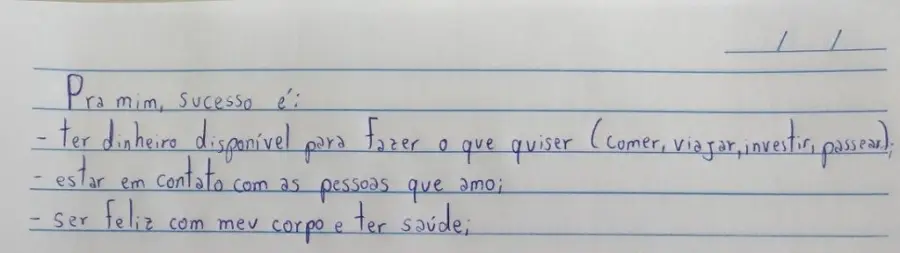 / /
Pra mim, sucesso é:
- ter dinheiro disponível para fazer o que quiser (comer, viajar, investir, passear);
- estar em contato com as pessoas que amo;
- ser feliz com meu corpo e ter saúde;